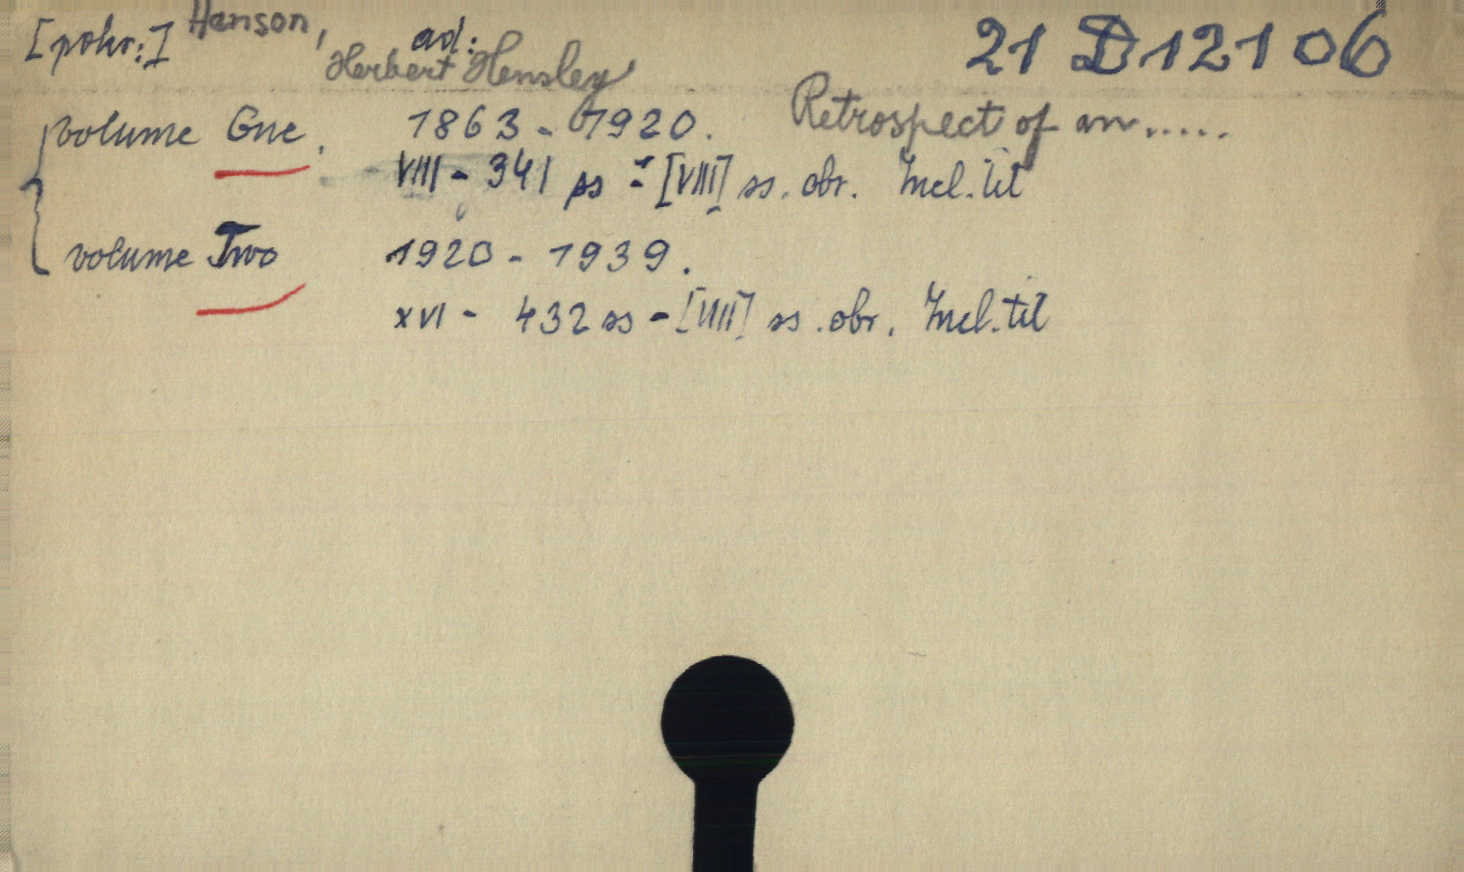 [pokr:] Hanson, ad: 21 D 121 06
Herbert Hensley
volume One. 1863 - 1920. Retrospect of an.....
VIII - 341 ss - [VIII] ss. obr. Incl. til
volume Two 1920 - 1939.
XVI - 432 ss - [VIII] ss. obr. Incl. til